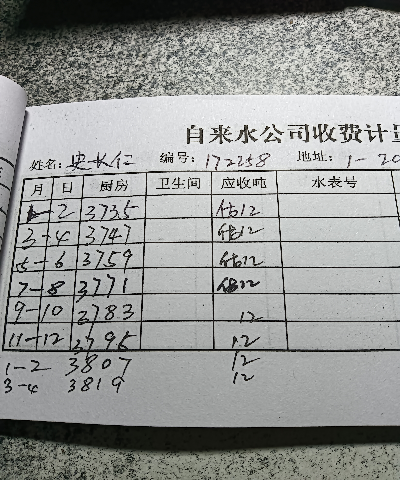 自来水公司收费计量
姓名: 史长仁 编号: 172258 地址: 1-20
月 日 厨房 卫生间 应收吨 水表号
1-2 3735 估12
3-4 3747 估12
5-6 3759 估12
7-8 3771 估12
9-10 3783 12
11-12 3795 12
1-2 3807 12
3-4 3819 12